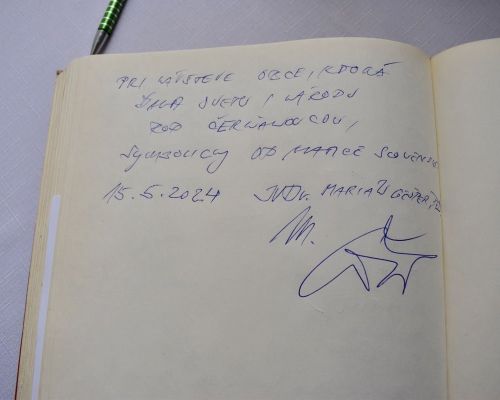 PRI NÁVŠTEVE OBCE, KTORÁ
DALA SVETU I NÁRODU
ROD ČERŇANOVCOV,
SYMBOLICKY OD MATICE SLOVENSKEJ
15.5.2024 JUDr. MARIÁN GEŠPER, PhD.